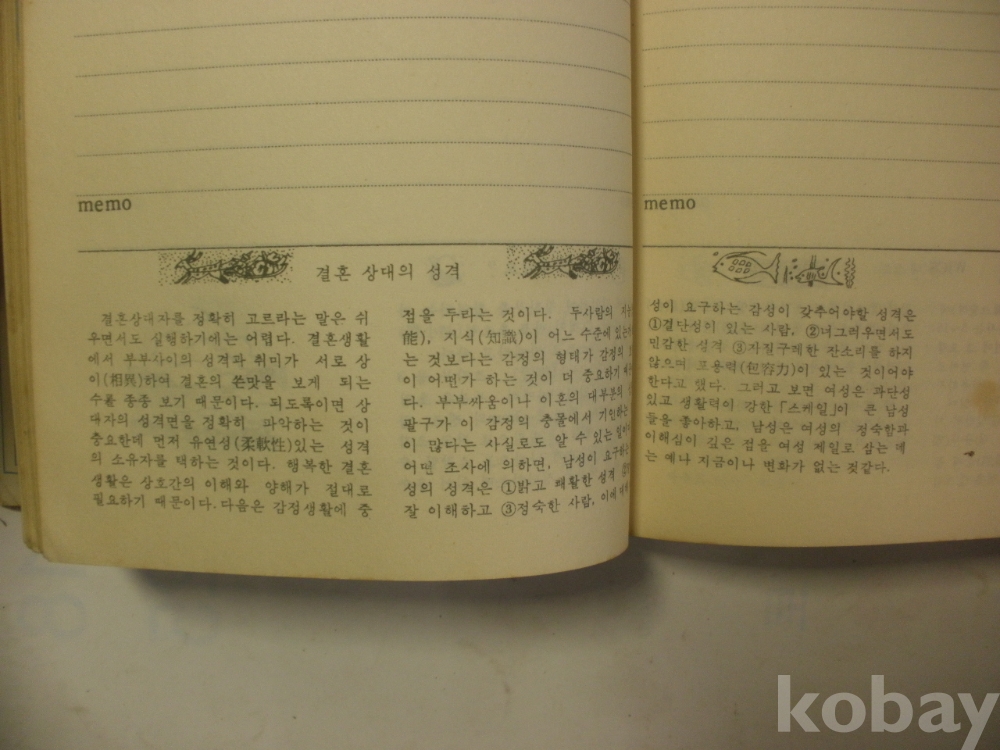 memo
결혼 상대의 성격
결혼상대자를 정확히 고르라는 말은 쉬
우면서도 실행하기에는 어렵다. 결혼생활
에서 부부사이의 성격과 취미가 서로 상
이(相異)하여 결혼의 쓴맛을 보게 되는
수를 종종 보기 때문이다. 되도록이면 상
대자의 성격면을 정확히 파악하는 것이
중요한데 먼저 유연성(柔軟性)있는 성격
의 소유자를 택하는 것이다. 행복한 결혼
생활은 상호간의 이해와 양해가 절대로
필요하기 때문이다. 다음은 감정생활에 중
점을 두라는 것이다. 두사람의
能), 지식(知識)이 어느 수준에
는 것보다는 감정의 형태가 감정의
이 어떤가 하는 것이 더 중요하기
다. 부부싸움이나 이혼의 대부분의
팔구가 이 감정의 충돌에서
이 많다는 사실로도 알 수 있는
어떤 조사에 의하면, 남성이
성의 성격은 ①밝고 쾌활한 성격
잘 이해하고 ③정숙한 사람, 이에
memo
성이 요구하는 감성이 갖추어야할 성격은
①결단성이 있는 사람, ②너그러우면서도
민감한 성격 ③자질구레한 잔소리를 하지
않으며 포용력(包容力)이 있는 것이어야
한다고 했다. 그러고 보면 여성은 과단성
있고 생활력이 강한 「스케일」이 큰 남성
들을 좋아하고, 남성은 여성의 정숙함과
이해심이 깊은 점을 여성 제일로 삼는 데
는 예나 지금이나 변화가 없는 것같다.
kobay